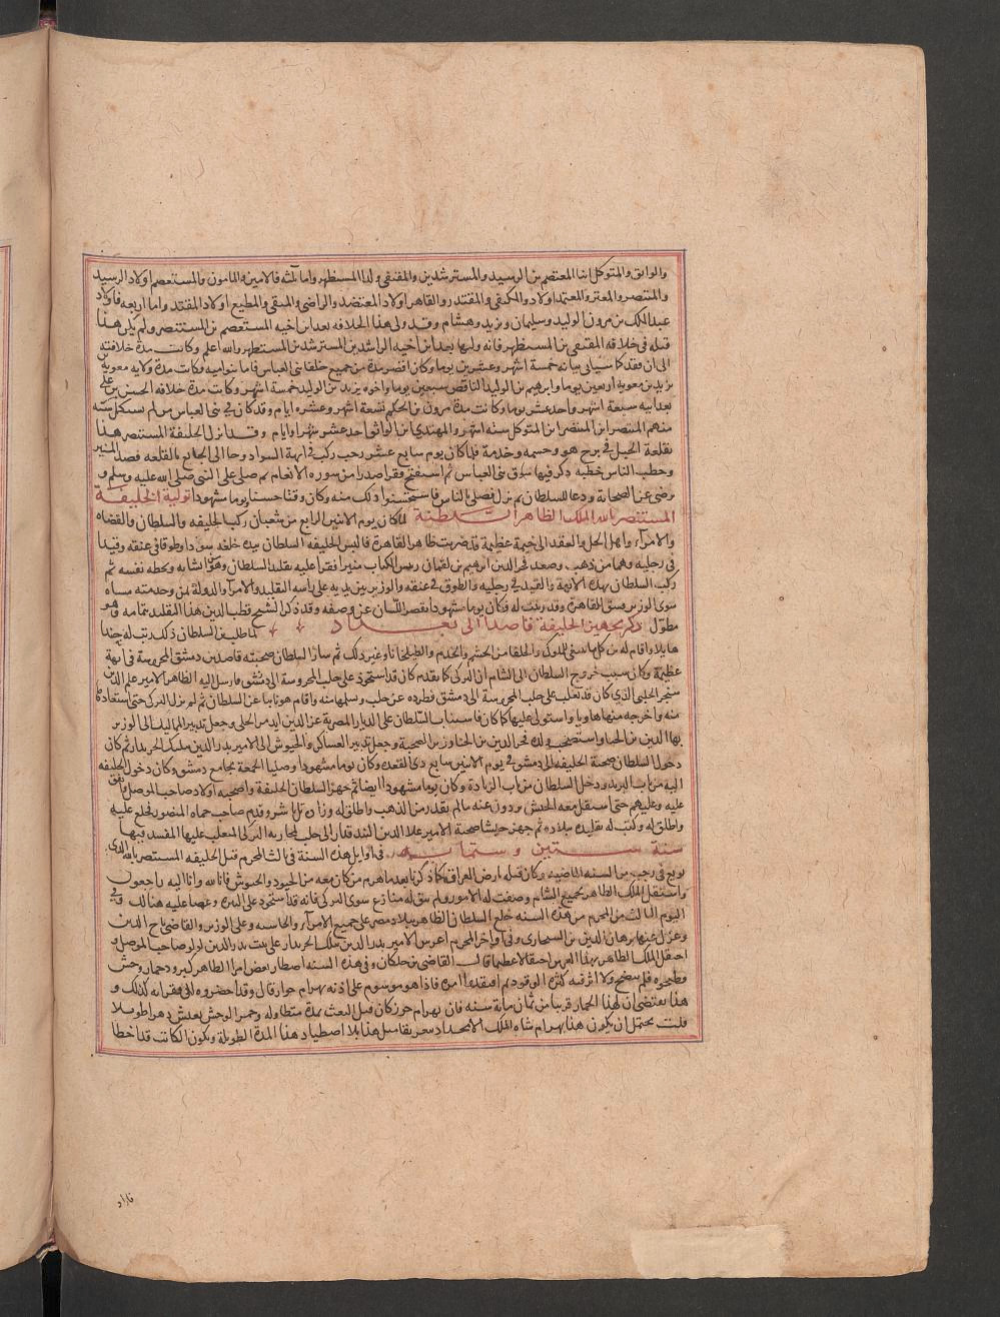 والواثق والمتوكل ابنا المعتصم بن الرشيد والمسترشد بن والمقتفي ولدا المستظهر واما ثلثه فالامين والمامون والمستعصم اولاد الرشيد
والمنتصر والمعتز والمعتمد اولاد والمكتفي والمقتدر والقاهر اولاد المعتضد والراضي والمتقي والمطيع اولاد المقتدر واما اربعه فاولاد
عبد الملك بن مرون الوليد وسليمان ويزيد وهشام وقد ولي هذا الخلافه بعد ابن اخيه المستعصم بن المستنصر ولم يلي هذا
قبله في خلافه المقتفي بن المستظهر فانه وليها بعد ابن اخيه الراشد بن المسترشد بن المستظهر والله اعلم وكانت مدة خلافته
الى ان فقد كما سياتي بيانه خمسة اشهر وعشرين يوما وكان اقصر مدة من جميع خلفا بني العباس فاما بنو اميه فكانت مدة ولايه معويه
بن يزيد بن معويه اربعين يوما وابرهيم بن الوليد الناقص سبعين يوما واخوه يزيد بن الوليد خمسة اشهر وكانت مدة خلافه الحسن بن علي
بعد ابيه سبعة اشهر واحد عشر يوما وكانت مدة مرون بن الحكم تسعة اشهر وعشره ايام وقد كان في بني العباس من لم يستكمل سنه
منهم المنتصر ابن المتوكل ستة اشهر والمهتدي ابن الواثق احد عشر شهرا وايام وقد انزل الخليفة المستنصر هذا
بقلعة الجبل في برج هو وحشمه وخدمه فلما كان يوم سابع عشر رجب ركب في ابهة السواد وجا الى الجامع بالقلعه فصعد المنبر
وخطب الناس خطبه ذكر فيها شرف بني العباس ثم استفتح فقرا صدرا من سوره الانعام ثم صلى على النبي صلى الله عليه وسلم و
رضي عن الصحابة ودعا للسلطان ثم نزل فصلى بالناس فاستحسنوا ذلك منه وكان وقتا حسنا ويوما مشهودا تولية الخليفة
المستنصر بالله الملك الظاهر السلطنة لما كان يوم الاثنين الرابع من شعبان ركب الخليفه والسلطان والقضاه
والامرآء واهل الحل والعقد الى خيمة عظيمة قد ضربت ظاهر القاهرة فالبس الخليفه السلطان بيده خلعه سودا وطوقا في عنقه وقيدا
في رجليه وهما من ذهب وصعد فخر الدين ابرهيم بن لقمان رئيس الكتاب منبرا فقرا عليه تقليد السلطان وهو انشايه وبخطه نفسه ثم
ركب السلطان بهذه الابهة والقيد في رجليه والطوق في عنقه والوزير بين يديه على راسه التقليد والامرآء والدولة في خدمته مشاه
سوى الوزير فشق القاهرة وقد زينت له فكان يوما مشهودا يقصر اللسان عن وصفه وقد ذكر الشيخ قطب الدين هذا التقليد بتمامه وهو
مطول ذكر تجهيز الخليفة قاصدا الى بغداد لما طلب من السلطان ذلك رتب له جندا
هايلا واقام له من كل ما ينبغي للملوك والخلفا من الحشم والخدم والطبلخانا وغير ذلك ثم سار السلطان صحبته قاصدين دمشق المحروسة في ابهة
عظيمة وكان سبب خروج السلطان الى الشام ان البرلي كما تقدم كان قد استحوذ على حلب المحروسة الى دمشق فارسل اليه الظاهر الامير علم الدين
سنجر الحلبي الذي كان قد تغلب على دمشق فطرده عن حلب وتسلمها منه واقام هو نايبا عن السلطان ثم لم يزل البرلي حتى استعادها
منه واخرجه منها هاربا واستولى عليها كما كان فاستناب السلطان على الديار المصرية عز الدين ايدمر الحلي وجعل تدبير الممالك الى الوزير
بها الدين بن الحنا واستصحب ولده فخر الدين بن الحنا وزير الصحبة وجعل تدبير العساكر والجيوش الى الامير بدر الدين ملبك الخزندار ثم كان
دخول السلطان صحبة الخليفه الى دمشق في يوم الاثنين سابع ذي القعده وكان يوما مشهودا وصليا الجمعة بجامع دمشق وكان دخول الخليفه
اليه من باب البريد ودخل السلطان من باب الزيادة وكان يوما مشهودا ايضا ثم جهز السلطان الخليفة واصحبه اولاد صاحب الموصل وانفق
عليه وعليهم حتى استقل معه الجيش ودون عنه مالم بقدر من الذهب واطلق له وزاده وقدم صاحب حماه المنصور فخلع عليه
واطلق له وكتب له تقليد ببلاده ثم جهز جيشا صحبة الامير علا الدين البندقدار الى حلب لمحاربه البرلي المتغلب عليها المفسد فيها
سنة ستين وستمايه في اوايل هذه السنة في ثالث المحرم قتل الخليفه المستنصر بالله الذي
بويع في رجب من السنه الماضيه وكان قتله بارض العراق كما ذكرنا بعد ما هرم من كان معه من الجنود والجيوش فانا لله وانا اليه راجعون
واستقل الملك الظاهر بجميع الشام وصفت له الامور فلم يبق له منازع سوى البرلي فانه قد استحوذ على البيره وعصا عليه هنالك وفي
اليوم الثالث من المحرم من هذه السنه خلع السلطان الظاهر ببلاد مصر على جميع الامرآء والحاشيه وعلى الوزير والقاضي تاج الدين
وعزل عنها برهان الدين بن السنجاري وفي اواخر المحرم اعرس الامير بدر الدين ملبك الخزندار على بنت بدر الدين لولو صاحب الموصل و
احتفل الملك الظاهر بهذا العرس احتفالا عظيما قال القاضي بن خلكان وفي هذه السنه اصطاد بعض امرا الظاهر حمار وحش
فطبخوه فلم ينضج ولا اثر فيه كثرة الوقود ثم افتقدوا امره فاذا هو موسوم على اذنه بهرام جور قال وقد احضروه الى فقراته كذلك و
هذا يقتضي ان لهذا الحمار قريبا من ثمان ماية سنه فان بهرام جور كان قبل البعث بمدة متطاوله وحمير الوحش تعيش دهرا طويلا
قلت يحتمل ان يكون هذا بهرام شاه الملك الامجد اذ يبعد بقا مثل هذا بلا اصطياد هذا المدة الطويلة ويكون الكاتب قد اخطا
فاراد